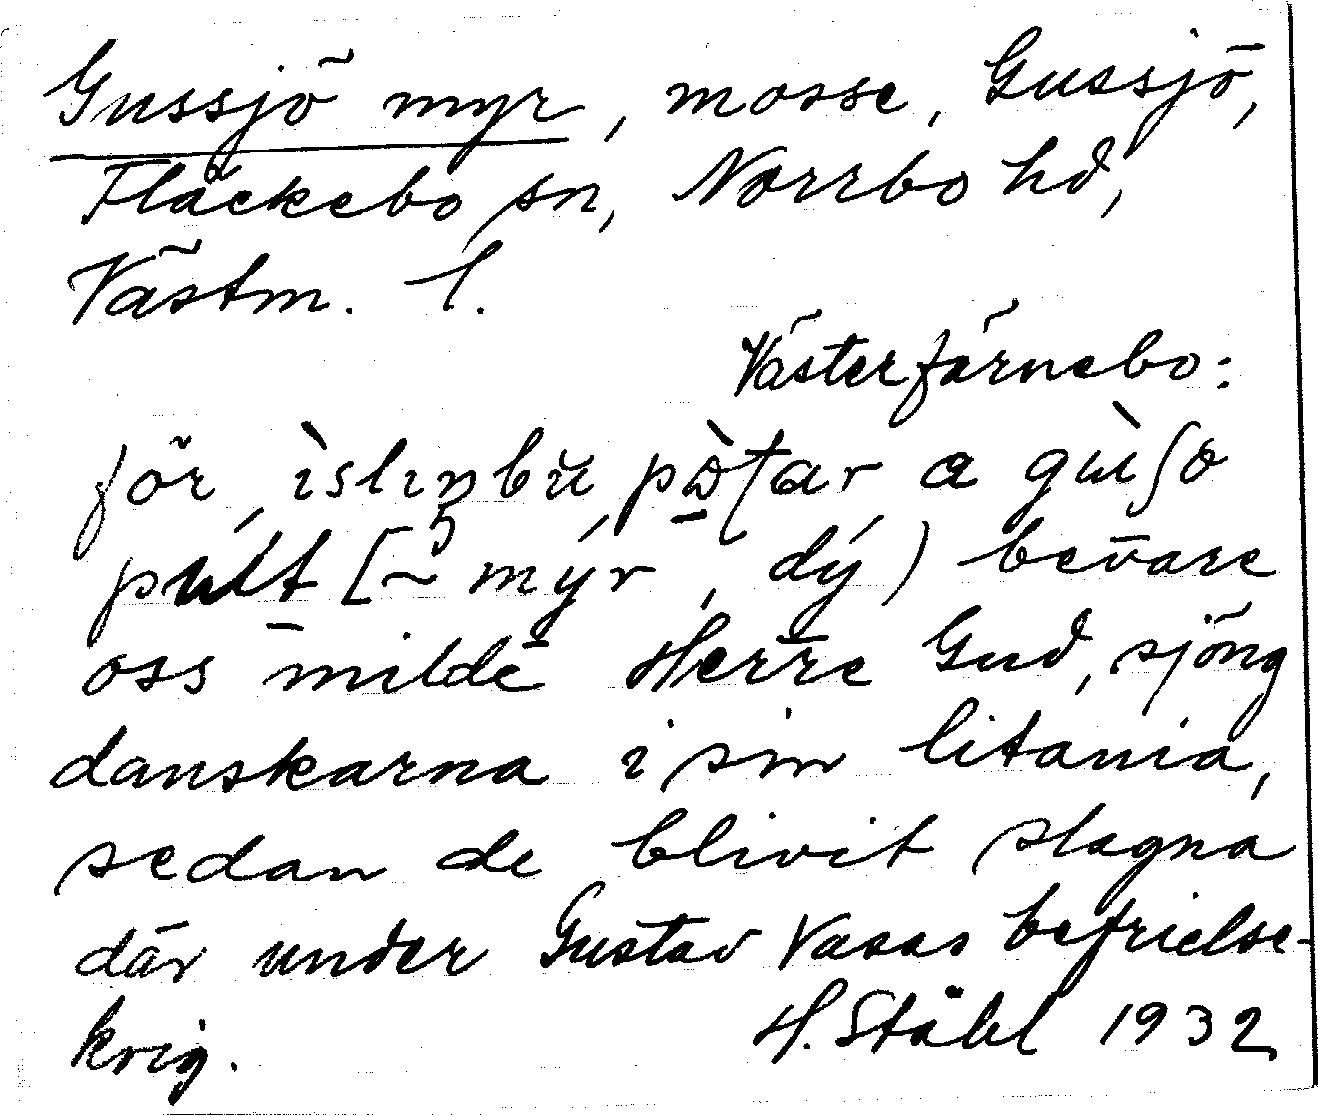 Gussjö myr, mosse, Gussjö,
Fläckebo sn, Norrbo hd,
Västm. l.
Västerfärnebo:
för, ìslıŋbu, a
pùlt [~ mýr, dý) bevare
oss milde Herre Gud, sjöng
danskarna i sin litania,
sedan de blivit slagna
där under Gustav Vasas befrielse-
krig. H. Ståhl 1932